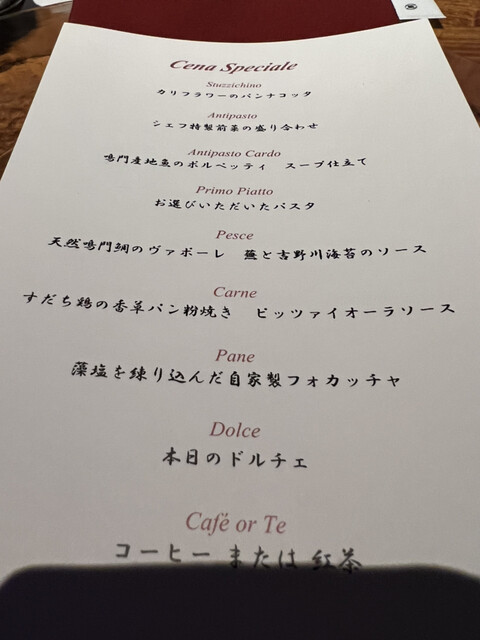 Cena Speciale
Stuzzichino
カリフラワーのパンナコッタ
Antipasto
シェフ特製前菜の盛り合わせ
Antipasto Cardo
鳴門産地魚のポルペッティ スープ仕立て
Primo Piatto
お選びいただいたパスタ
Pesce
天然鳴門鯛のヴァポーレ 蕪と吉野川海苔のソース
Carne
すだち鶏の香草パン粉焼き ピッツァイオーラソース
Pane
藻塩を練り込んだ自家製フォカッチャ
Dolce
本日のドルチェ
Café or Te
コーヒー または 紅茶